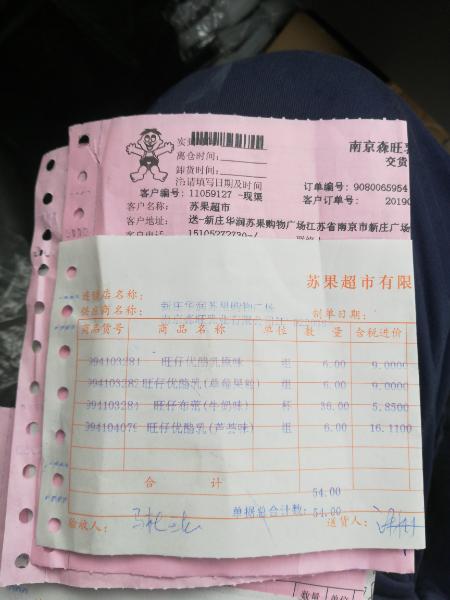 南京森旺
交货
离仓时间:
卸货时间:
请填写日期及时间
订单编号: 9080065954
客户编号: 11059127 -现渠
客户订单号: 2019
客户名称: 苏果超市
客户地址: 送-新庄华润苏果购物广场江苏省南京市新庄广场
客户电话 15105272730-/
苏果超市有限
连锁店名称: 新庄华润苏果购物广场
供应商名称:
制单日期:
商品货号 商品名称 单位 数量 含税进价
旺仔优酪乳原味 组 6.00 9.0000
旺仔优酪乳(草莓果粒) 组 6.00 9.0000
旺仔布蕾(牛奶味) 杯 36.00 5.8500
旺仔优酪乳(芦荟味) 组 6.00 16.1100
合计
54.00
单据总合计数: 54.00
验收人:
送货人:
数量 单位